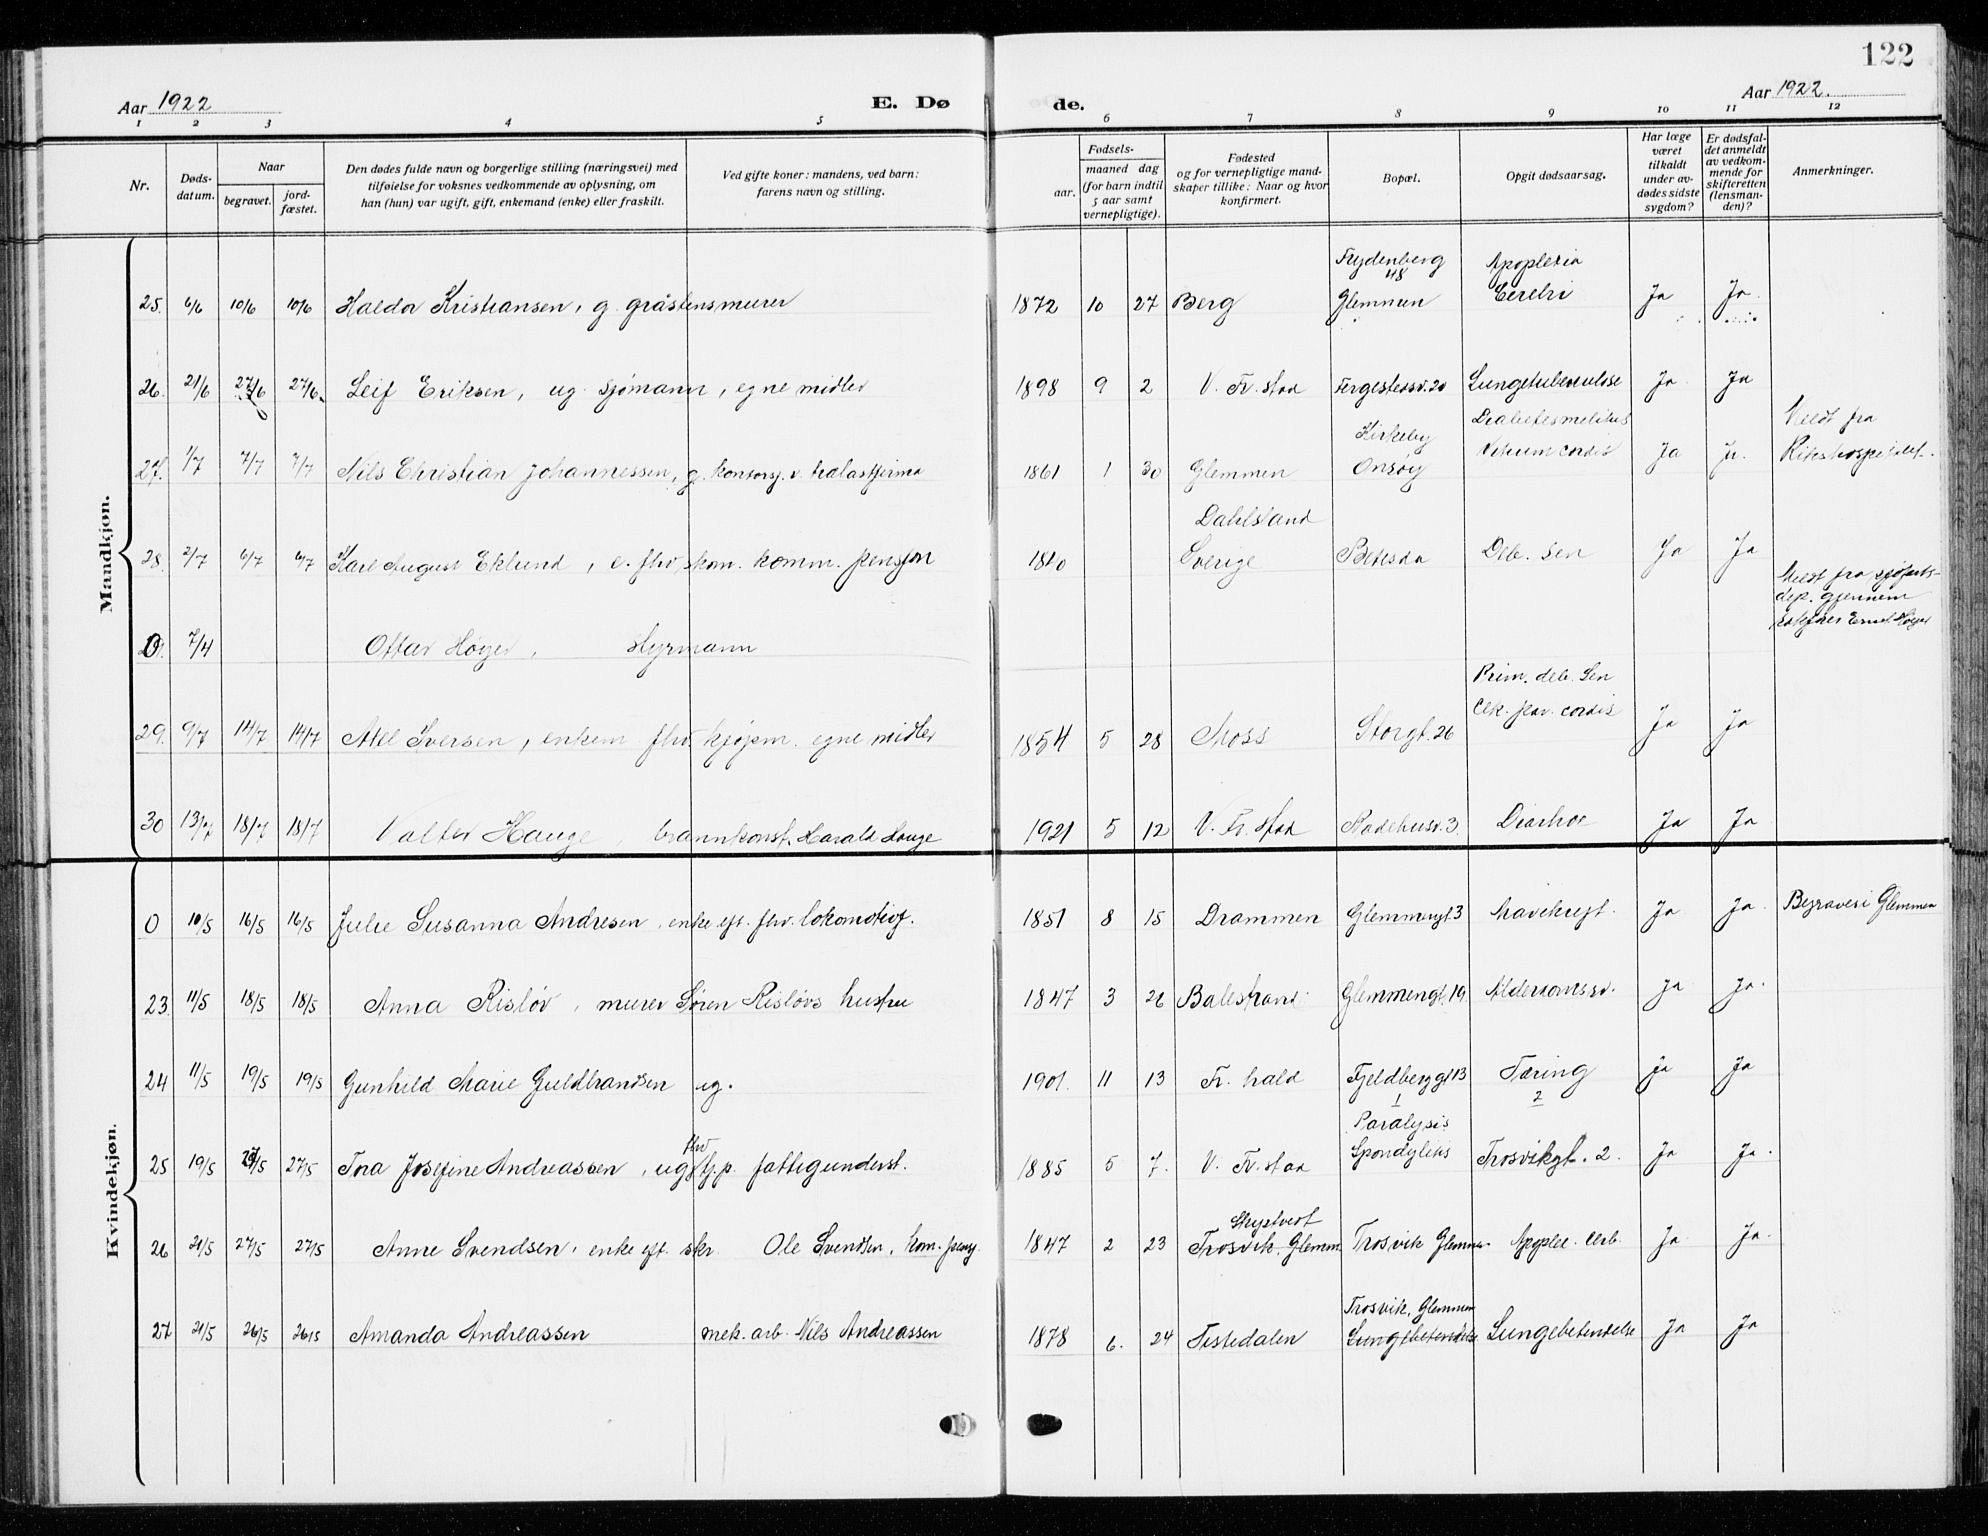 122
Aar 1922
E. Dø
de.
Aar 1922.
1 2 3 4 5 6 7 8 9 10 11 12
Nr.
Døds-
datum.
Naar
begravet.
jord-
fæstet.
Den dødes fulde navn og borgerlige stilling (næringsvei) med
tilføielse for voksnes vedkommende av oplysning, om
han (hun) var ugift, gift, enkemand (enke) eller fraskilt.
Ved gifte koner: mandens, ved barn:
farens navn og stilling.
Fødsels-
aar.
maaned dag
(for barn indtil
5 aar samt
vernepligtige).
Fødested
og for vernepligtige mand-
skaper tillike: Naar og hvor
konfirmert.
Bopæl.
Opgit dødsaarsag.
Har læge
været
tilkaldt
under av-
dødes sidste
sygdom?
Er dødsfal-
det anmeldt
av vedkom-
mende for
skifteretten
(lensman-
den)?
Anmerkninger.
Mandkjøn.
Frydenberg Apoplexia
48
25. 6/6 10/6 10/6 Haldor Kristiansen, g. gråstensmurer 1872 10 27 Berg Glemmen Cerebri Ja Ja
26. 21/6 27/6 27/6 Leif Eriksen, ug. sjømann, egne midler 1898 9 2 V. Fr.stad Fergestedsv. 20 Lungetuberculose Ja Ja
Kirkeby Diabetes melitus Meldt fra
27. 1/7 7/7 7/7 Nils Christian Johannessen, g. kontorsj. v. trælastfirma 1861 1 30 Glemmen Onsøy Vitium cordis Ja Ja. Rikshospitalet.
Dahlsland
28. 2/7 6/7 6/7 Karl August Eklund, e. fhv. skom. komm. pensjon 1840 Sverige Betesda Deb. sen Ja Ja
Meldt fra sjøfarts-
dep. gjennem
0 7/4 Ottar Høyer, Styrmann
Prim. deb. sen
29. 9/7 14/7 14/7 Axel Iversen, enkem. fhv. kjøpm. egne midler 1854 5 28 Moss Storgt. 26 cordis Ja Ja
30 13/7 18/7 18/7 Valter Hauge, brannkonst. Harald Hauge 1921 5 12 V. Fr.stad Raadehusv. 3. Diarhoe Ja Ja
Kvindekjøn.
0 10/5 16/5 16/5 Julie Susanna Andresen, enke eft. fhv. lokomotivf. 1851 8 15 Drammen Glemmengt 3 Mavekreft. Ja Ja. Begraves i Glemmen
23. 11/5 18/5 18/5 Anna Risløv, murer Søren Risløvs hustru 1847 3 26 Balestrand Glemmengt. 19. Alderdomssv. Ja Ja.
24 11/5 19/5 19/5 Gunhild Marie Guldbrandsen ug. 1901. 11 13 Fr. hald Fjeldberggt 13 Tæring Ja Ja
fhv 1 2
Paralysis
25 19/5 27/5 27/5 Tora Josefine Andreassen, ug. tj.p. fattigunderst. 1885 5 7. V. Fr.stad Spondylitis Trosvikgt. 2. Ja Ja.
Skiptvedt
26 21/5 27/5 27/5 Anne Svendsen, enke eft. skr Ole Svendsen, kom. pensj. 1847 2 23 Trosvik, Glemm. Trosvik Glemmen Apoplex. cerb. Ja Ja.
Trosvik, Glemmen
27 21/5 26/5 26/5 Amanda Andreassen mek. arb. Nils Andreassen 1878 6. 24 Tistedalen Lungebetendelse Lungebetendelse Ja Ja